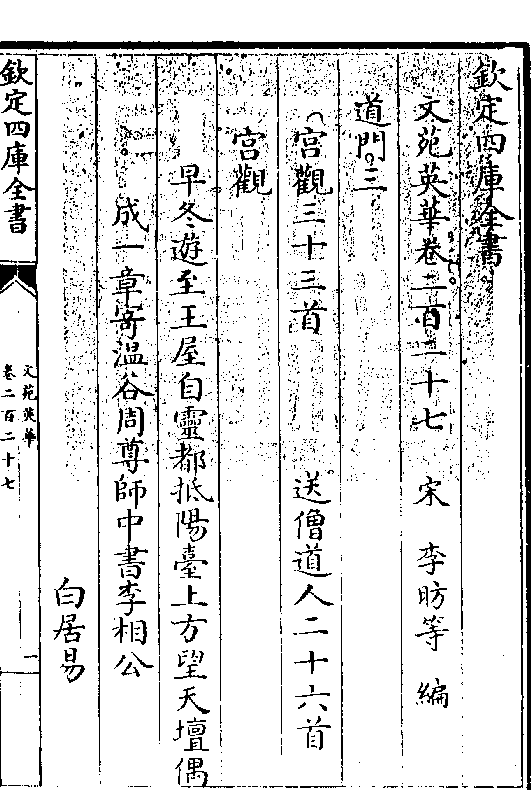 欽定四庫全書
文苑英華卷二百二十七　宋　李昉等　編
道門三
宮觀三十三首　送僧道人二十六首
宮觀
早冬遊至王屋自靈都抵陽臺上方望天壇偶
成一章寄溫谷周尊師中書李相公
白居易
欽定四庫全書
文苑英華
卷二百二十七
一